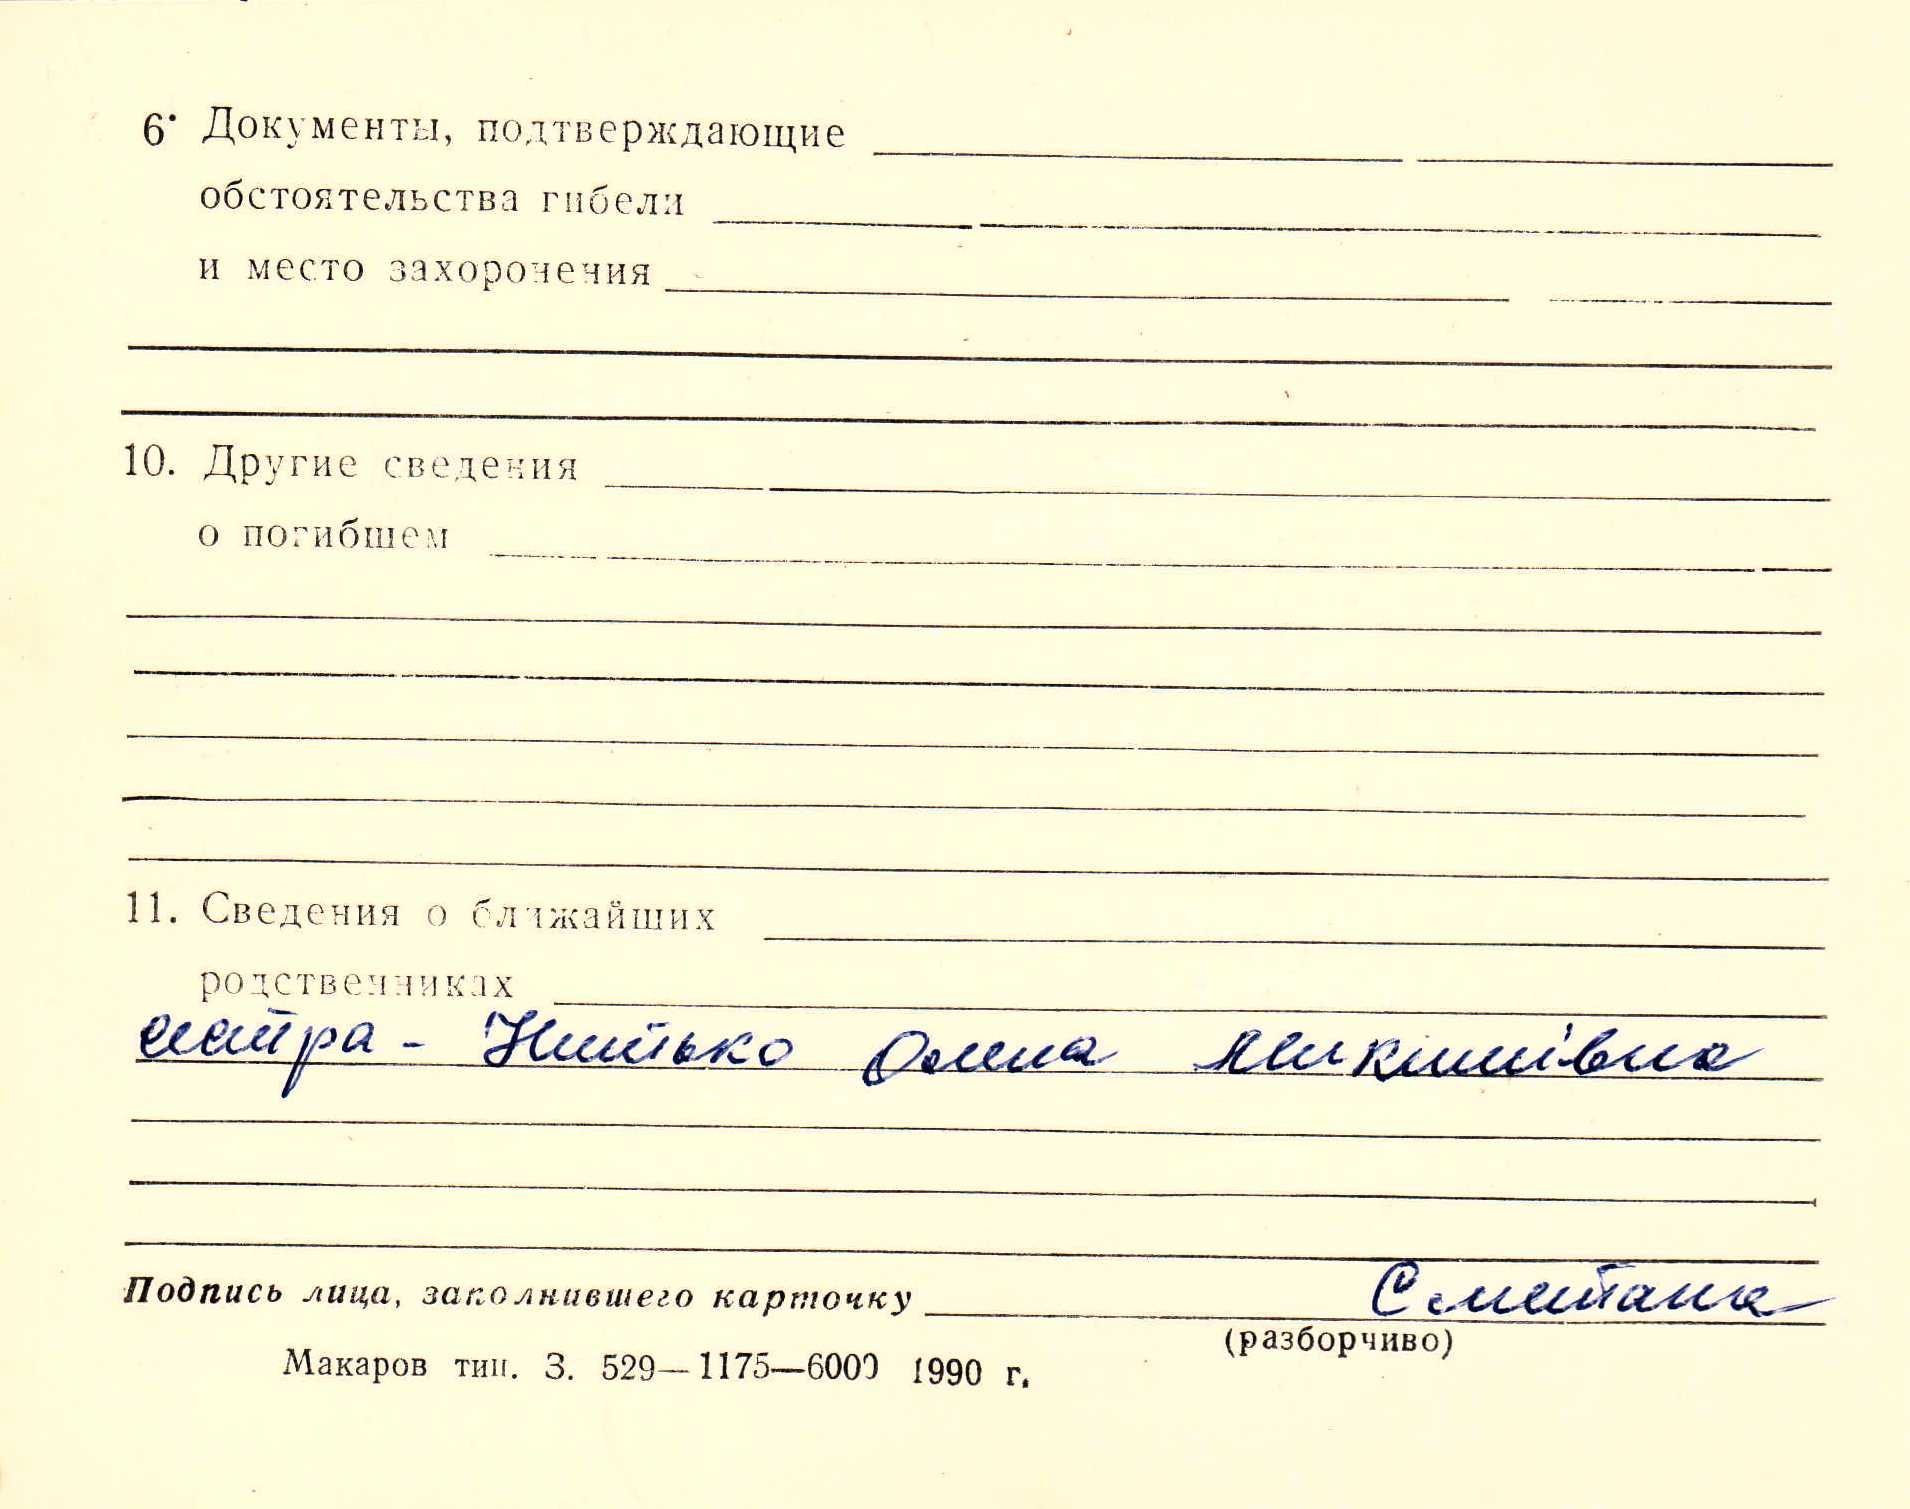 6. Документы, подтверждающие
обстоятельства гибели
и место захоронения
10. Другие сведения
о погибшем
11. Сведения о ближайших
родственниках
сестра - Нитько Олена Микитівна
Подпись лица, заполнившего карточку Сметана
(разборчиво)
Макаров тип. З. 529—1175—6000 1990 г.